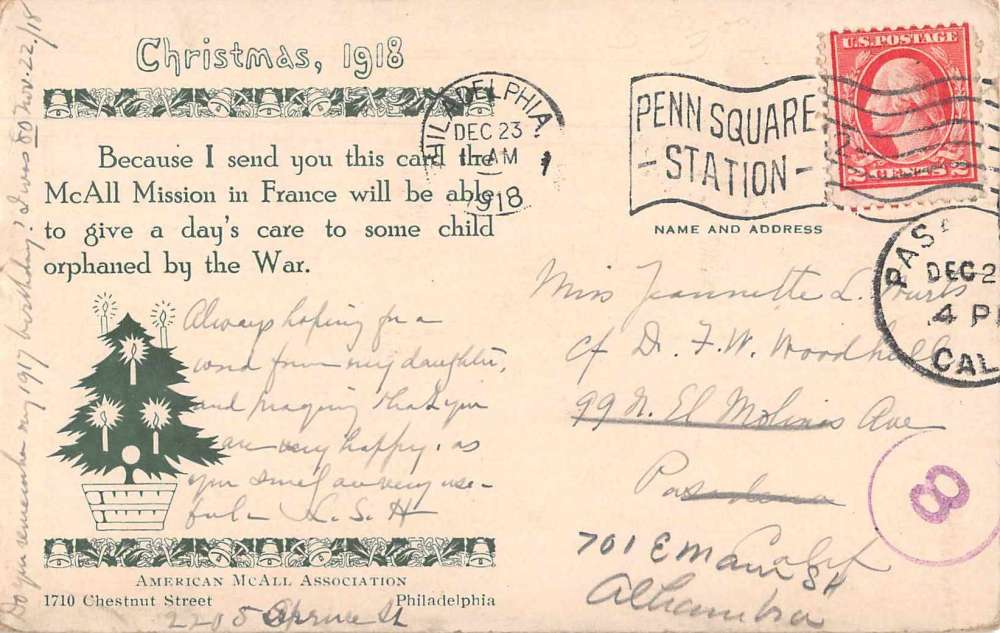 Christmas, 1918
Because I send you this card the
McAll Mission in France will be able
to give a day's care to some child
orphaned by the War.
Always hoping for a
word from my daughter,
and praying that you
are very happy, as
you surely are very use-
ful - S. H
AMERICAN MCALL ASSOCIATION
1710 Chestnut Street Philadelphia
2205 Spruce St
Do you remember my 1917 birthday? I was 80 Nov. 22/18
PHILADELPHIA
DEC 23
11 AM
1918
1
PENN SQUARE
- STATION -
U.S. POSTAGE
2 CENTS 2
NAME AND ADDRESS
Miss Jeannette L.
c/ Dr. F. W. Woodhull
99 N. El Molino Ave
Pasadena
Calif
701 E Main St
Alhambra
PAS
DEC 2
4 P
CAL
8